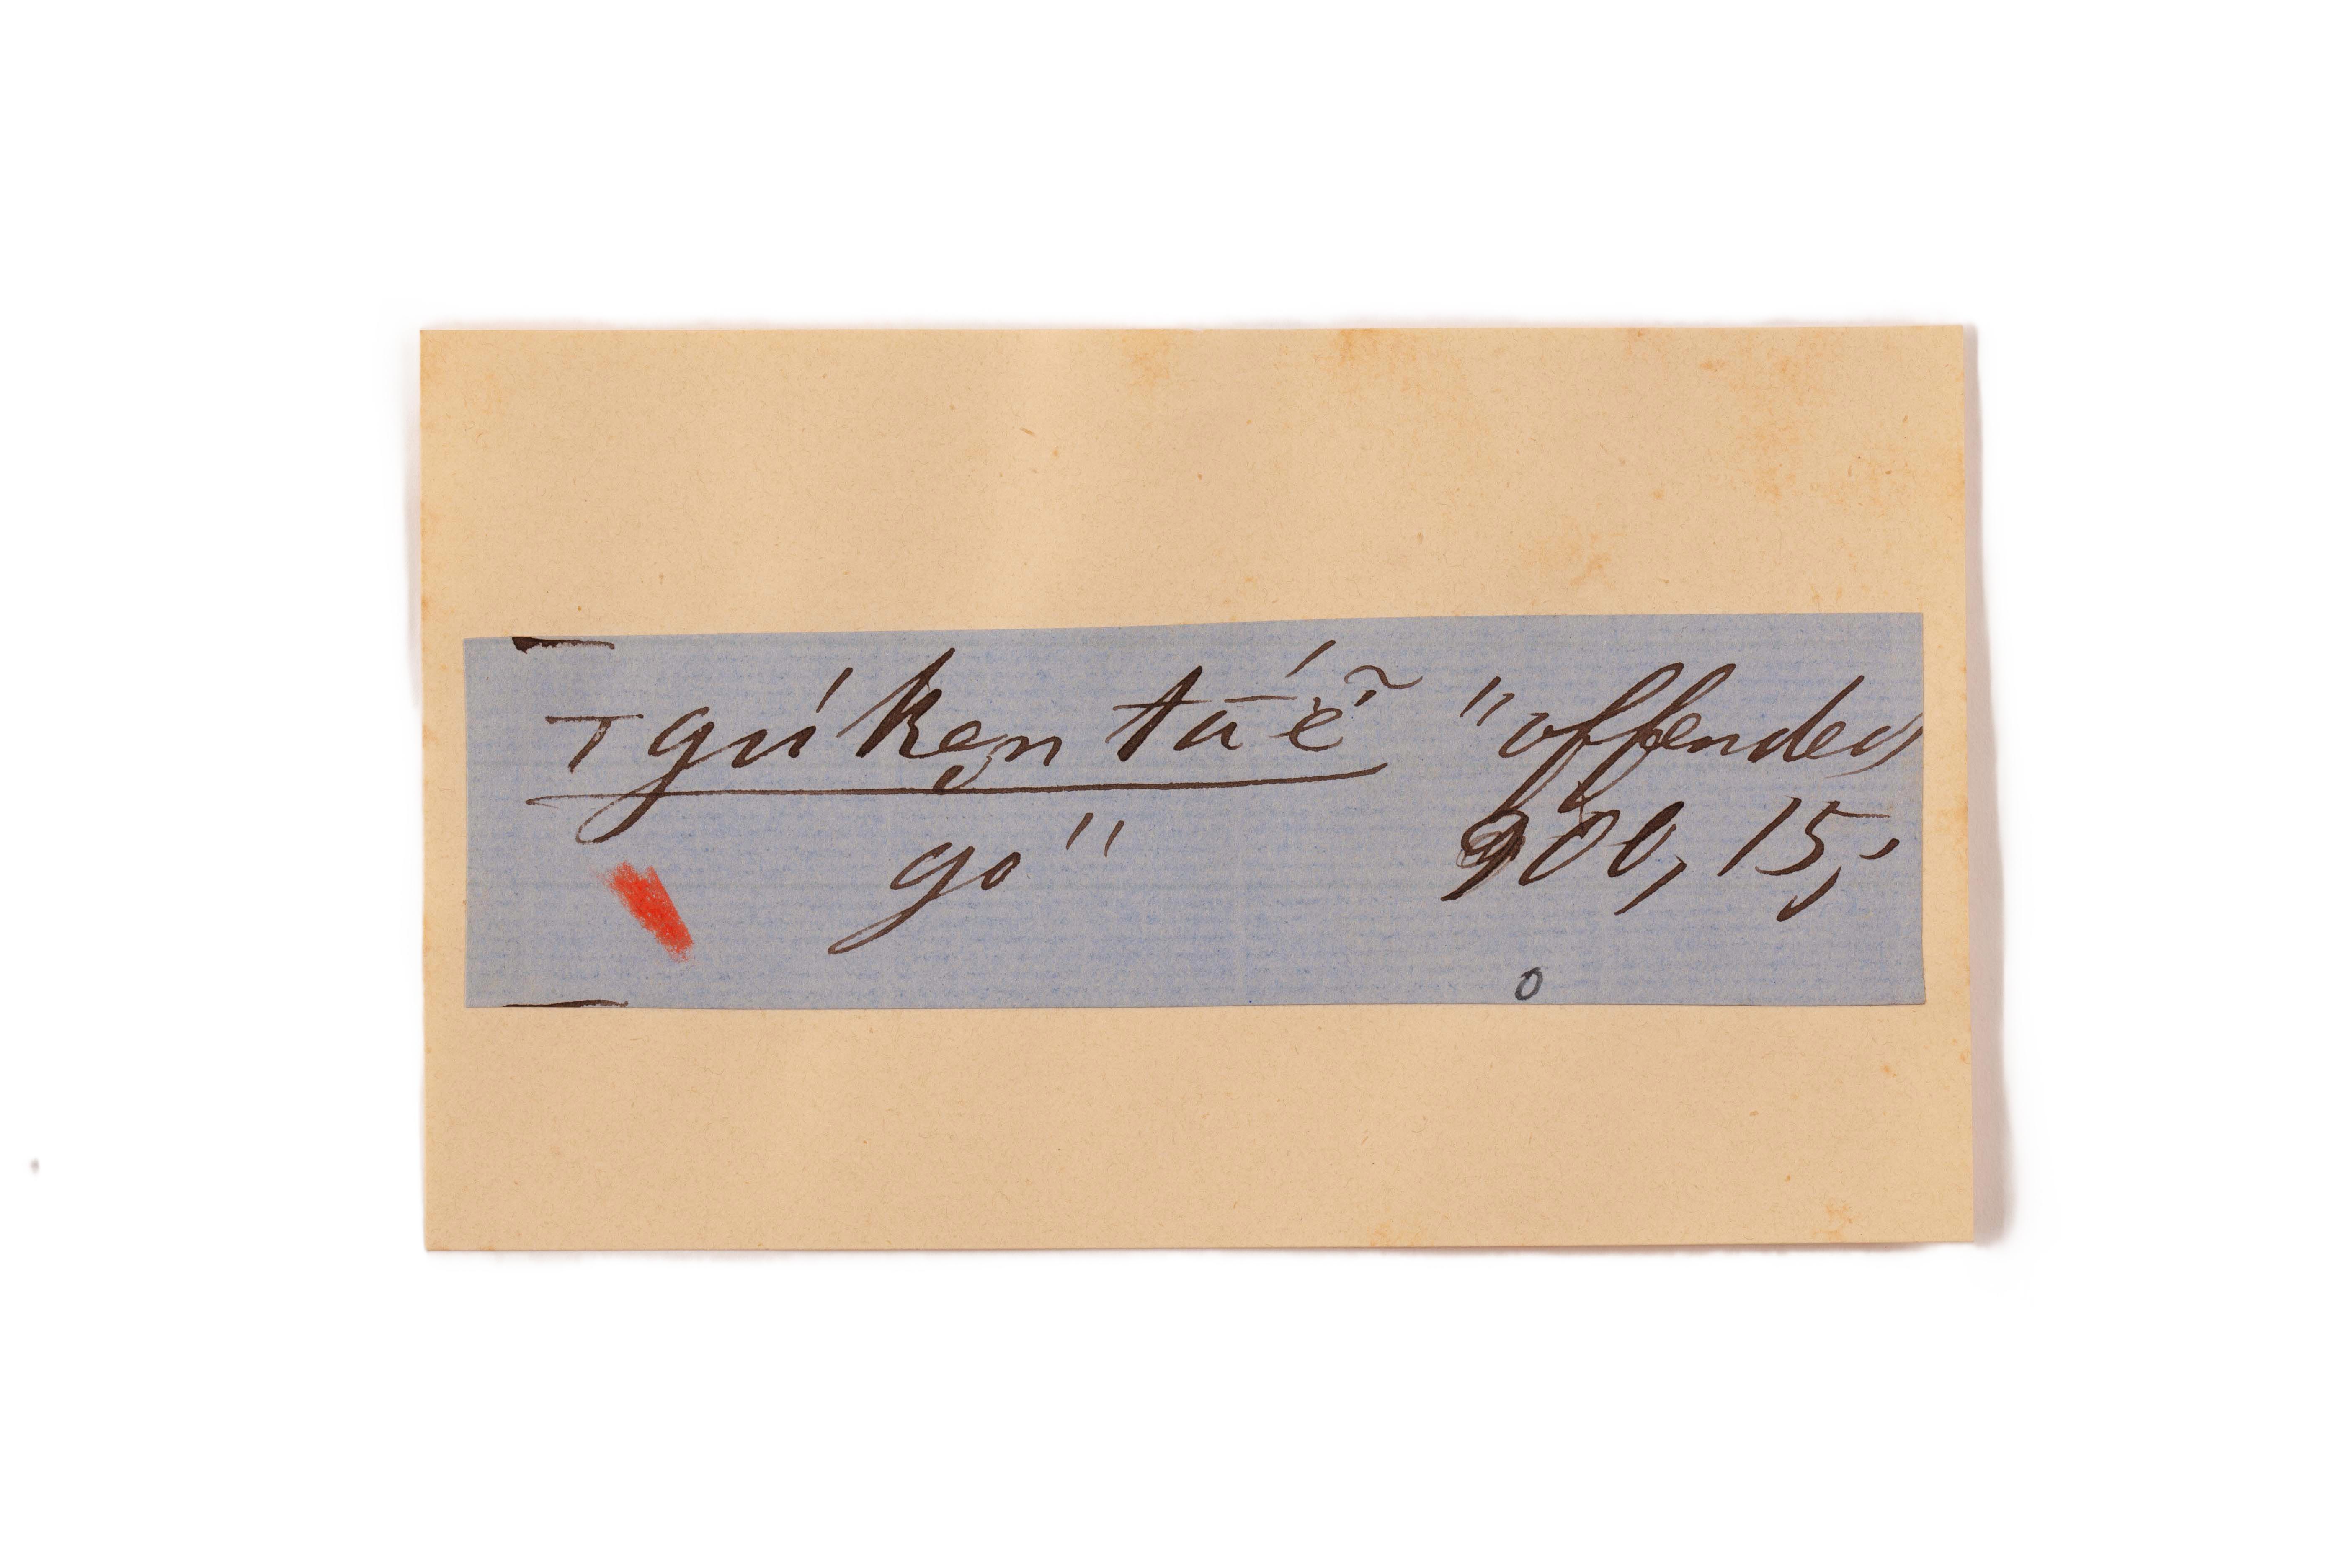 ⊤gúken tā́ë̃ "offended
go" 900, 15,,
o